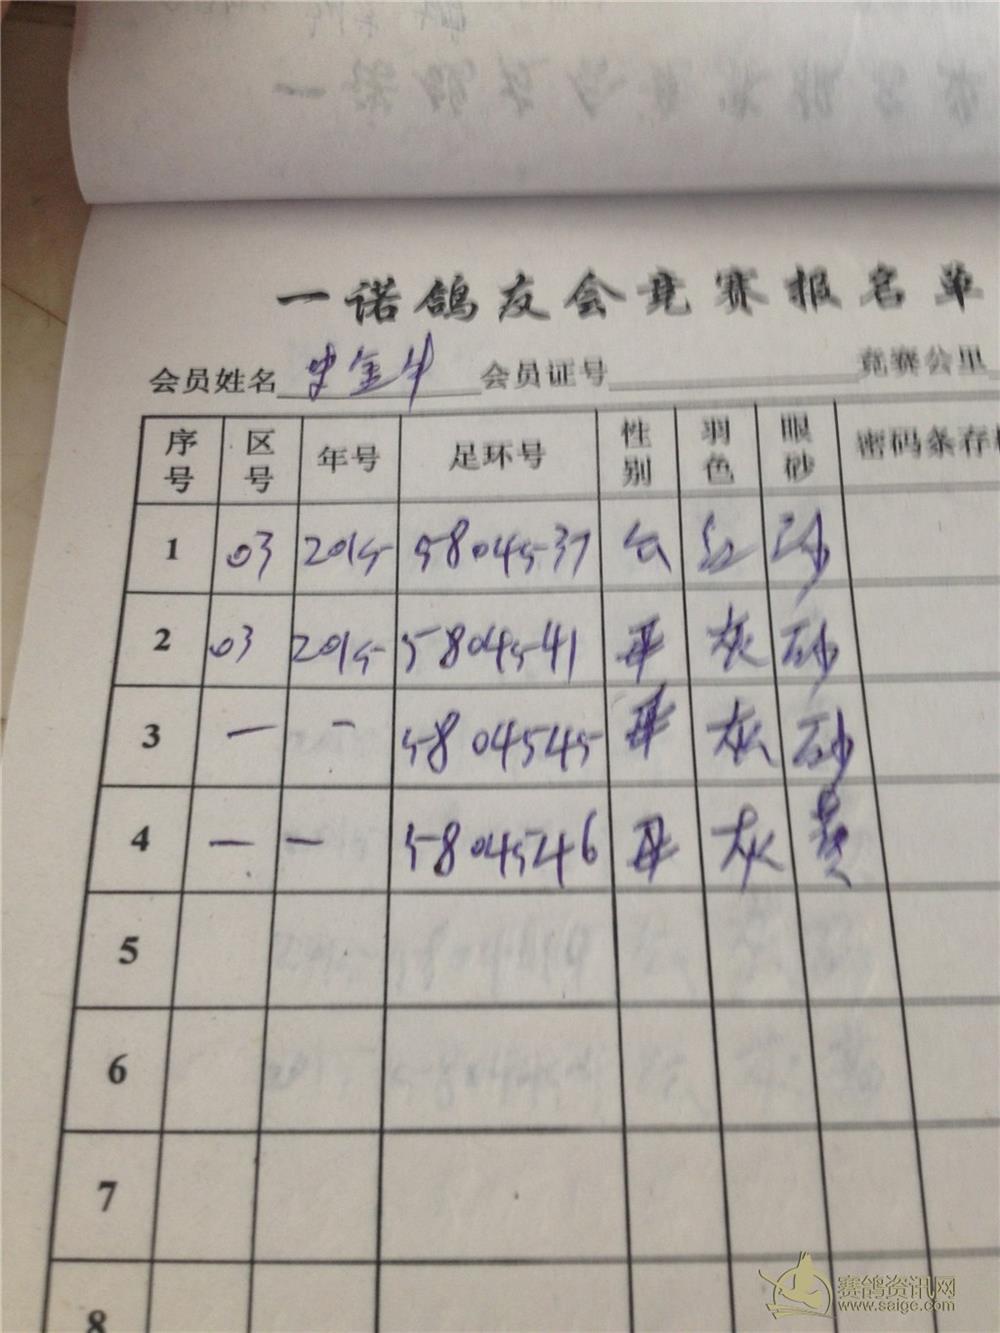 一诺鸽友会竞赛报名单
会员姓名 史金牛 会员证号 竞赛公里
序号 区号 年号 足环号 性别 羽色 眼砂 密码条存
1 03 2015 5804537 公 红 砂
2 03 2015 5804541 母 灰 砂
3 一 一 5804545 母 灰 砂
4 一 一 5804546 母 灰 黄
5
6
7
8
赛鸽资讯网
www.saige.com